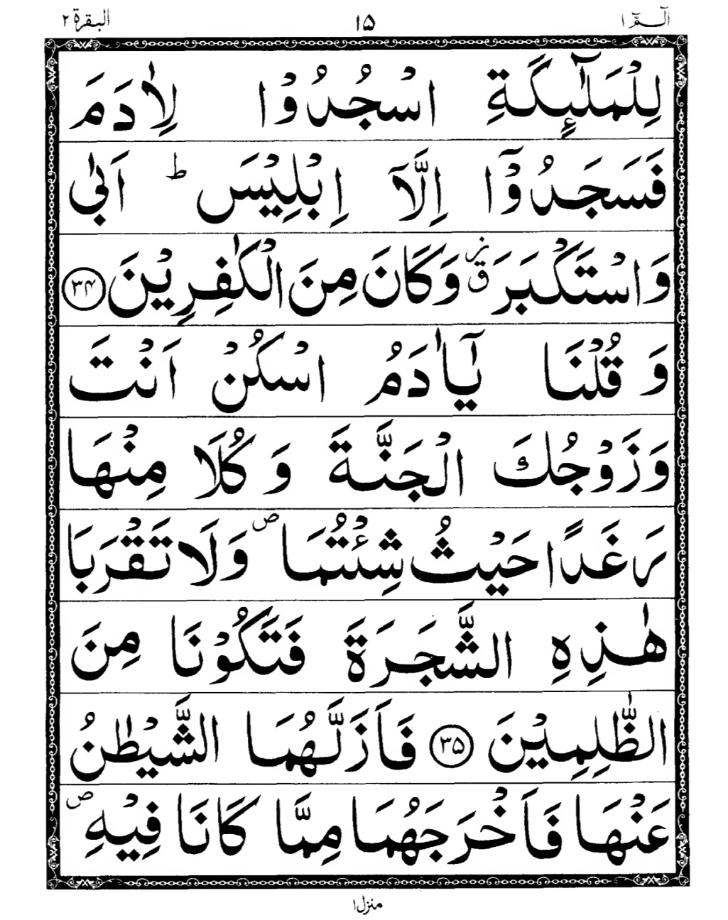 الٓمّٓ ١ ١٥ البقرة ٢
لِلْمَلٰٓئِكَةِ اسْجُدُوْا لِاٰدَمَ
فَسَجَدُوْۤا اِلَّاۤ اِبْلِيْسَ ؕ اَبٰى
وَاسْتَكْبَرَ ؗۗ وَكَانَ مِنَ الْكٰفِرِيْنَ ﴿۳۴﴾
وَ قُلْنَا يٰۤاٰدَمُ اسْكُنْ اَنْتَ
وَزَوْجُكَ الْجَنَّةَ وَ كُلَا مِنْهَا
رَغَدًا حَيْثُ شِئْتُمَا ۪ وَلَا تَقْرَبَا
هٰذِهِ الشَّجَرَةَ فَتَكُوْنَا مِنَ
الظّٰلِمِيْنَ ﴿۳۵﴾ فَاَزَلَّهُمَا الشَّيْطٰنُ
عَنْهَا فَاَخْرَجَهُمَا مِمَّا كَانَا فِيْهِ ۪
منزل١